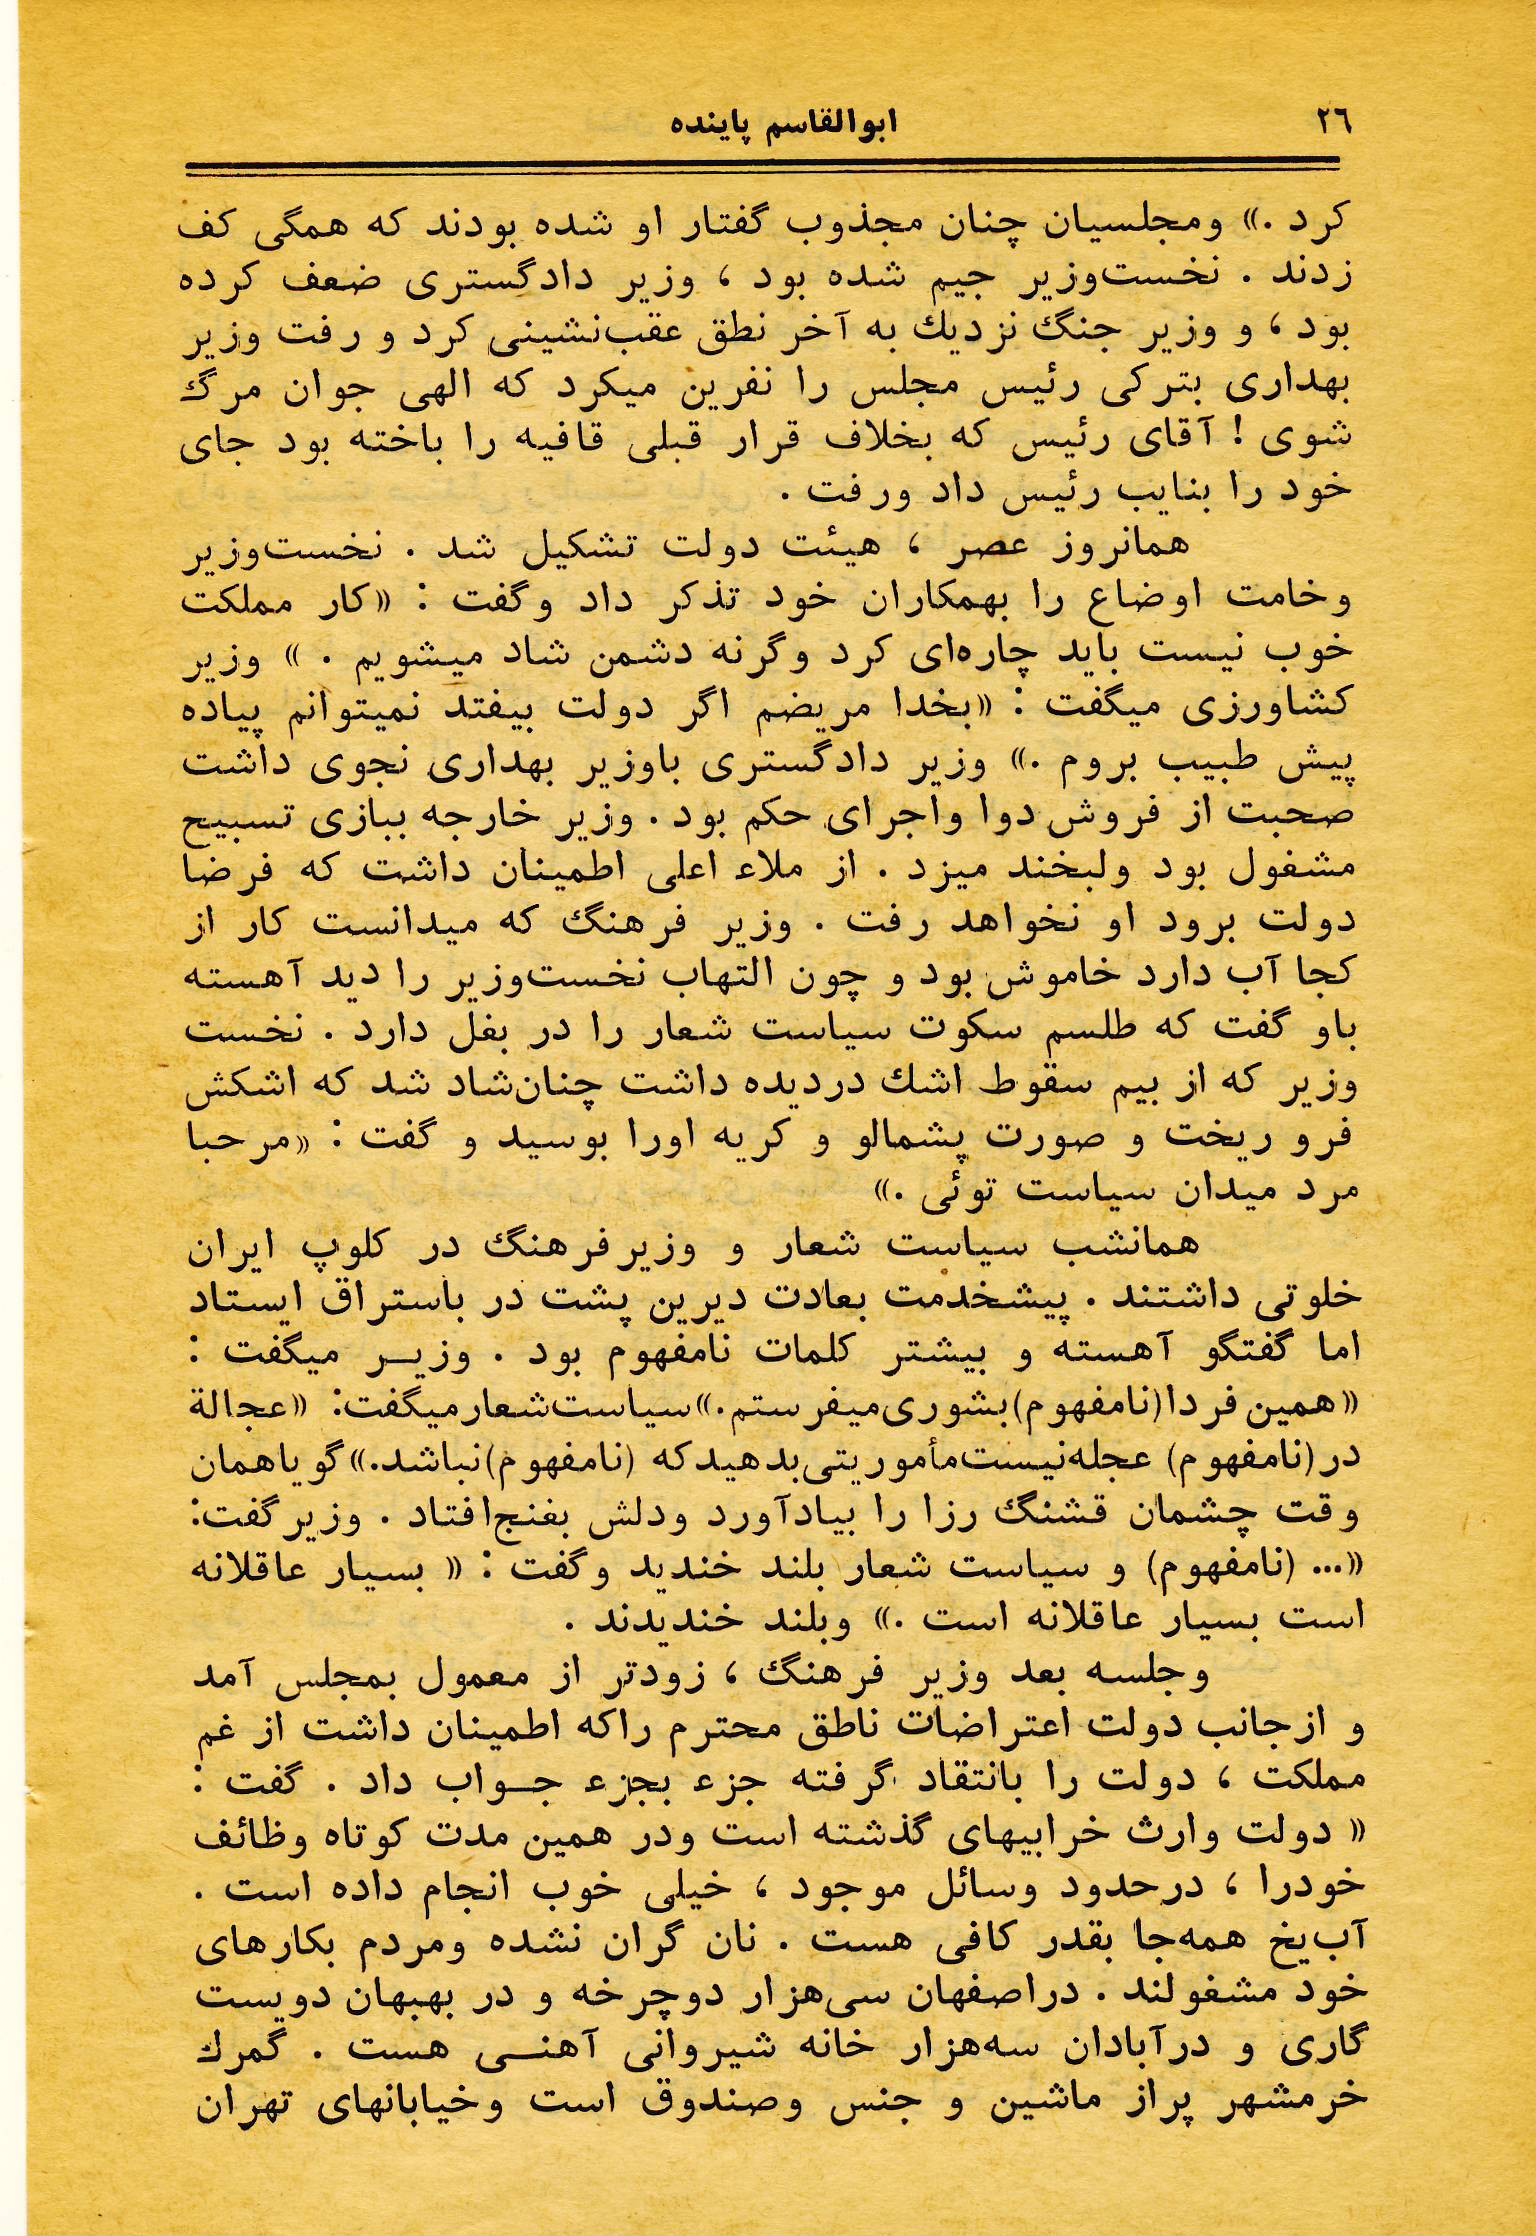 ۲٦
ابوالقاسم پاینده
کرد .» ومجلسیان چنان مجذوب گفتار او شده بودند که همگی کف
زدند . نخست‌وزیر جیم شده بود ، وزیر دادگستری ضعف کرده
بود ، و وزیر جنگ نزدیك به آخر نطق عقب‌نشینی کرد و رفت وزیر
بهداری بترکی رئیس مجلس را نفرین میکرد که الهی جوان مرگ
شوی ! آقای رئیس که بخلاف قرار قبلی قافیه را باخته بود جای
خود را بنایب رئیس داد ورفت .
همانروز عصر ، هیئت دولت تشکیل شد . نخست‌وزیر
وخامت اوضاع را بهمکاران خود تذکر داد وگفت : «کار مملکت
خوب نیست باید چاره‌ای کرد وگرنه دشمن شاد میشویم . » وزیر
کشاورزی میگفت : «بخدا مریضم اگر دولت بیفتد نمیتوانم پیاده
پیش طبیب بروم .» وزیر دادگستری باوزیر بهداری نجوی داشت
صحبت از فروش دوا واجرای حکم بود . وزیر خارجه ببازی تسبیح
مشغول بود ولبخند میزد . از ملاء اعلی اطمینان داشت که فرضا
دولت برود او نخواهد رفت . وزیر فرهنگ که میدانست کار از
کجا آب دارد خاموش بود و چون التهاب نخست‌وزیر را دید آهسته
باو گفت که طلسم سکوت سیاست شعار را در بغل دارد . نخست
وزیر که از بیم سقوط اشك دردیده داشت چنان‌شاد شد که اشکش
فرو ریخت و صورت پشمالو و کریه اورا بوسید و گفت : «مرحبا
مرد میدان سیاست توئی .»
همانشب سیاست شعار و وزیرفرهنگ در کلوپ ایران
خلوتی داشتند . پیشخدمت بعادت دیرین پشت در باستراق ایستاد
اما گفتگو آهسته و بیشتر کلمات نامفهوم بود . وزیـر میگفت :
«همین فردا(نامفهوم)بشوری‌میفرستم.»سیاست‌شعارمیگفت: «عجالة
در(نامفهوم) عجله‌نیست‌مأموریتی‌بدهیدکه (نامفهوم)نباشد.»گویاهمان
وقت چشمان قشنگ رزا را بیادآورد ودلش بغنج‌افتاد . وزیرگفت:
«... (نامفهوم) و سیاست شعار بلند خندید وگفت : « بسیار عاقلانه
است بسیار عاقلانه است .» وبلند خندیدند .
وجلسه بعد وزیر فرهنگ ، زودتر از معمول بمجلس آمد
و ازجانب دولت اعتراضات ناطق محترم راکه اطمینان داشت از غم
مملکت ، دولت را بانتقاد گرفته جزء بجزء جـواب داد . گفت :
« دولت وارث خرابیهای گذشته است ودر همین مدت کوتاه وظائف
خودرا ، درحدود وسائل موجود ، خیلی خوب انجام داده است .
آب‌یخ همه‌جا بقدر کافی هست . نان گران نشده ومردم بکارهای
خود مشغولند . دراصفهان سی‌هزار دوچرخه و در بهبهان دویست
گاری و درآبادان سه‌هزار خانه شیروانی آهنـی هست . گمرك
خرمشهر پراز ماشین و جنس وصندوق است وخیابانهای تهران